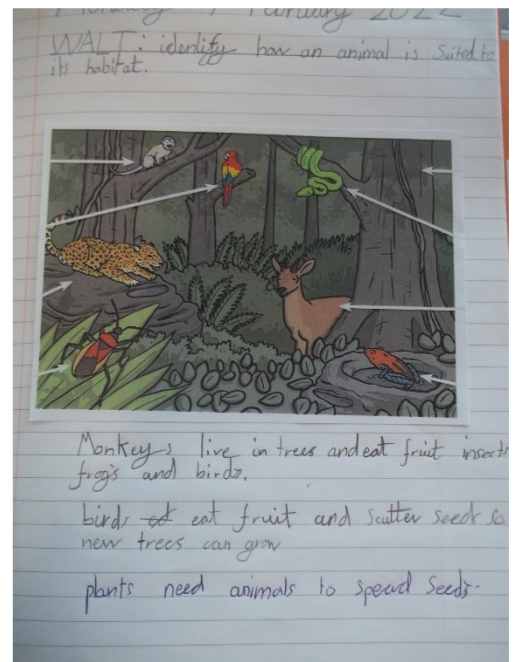 February 2022
WALT: identify how an animal is suited to
its habitat.
Monkeys live in trees and eat fruit insects
frogs and birds.
birds eat fruit and scatter seeds so
new trees can grow
plants need animals to spead seeds.